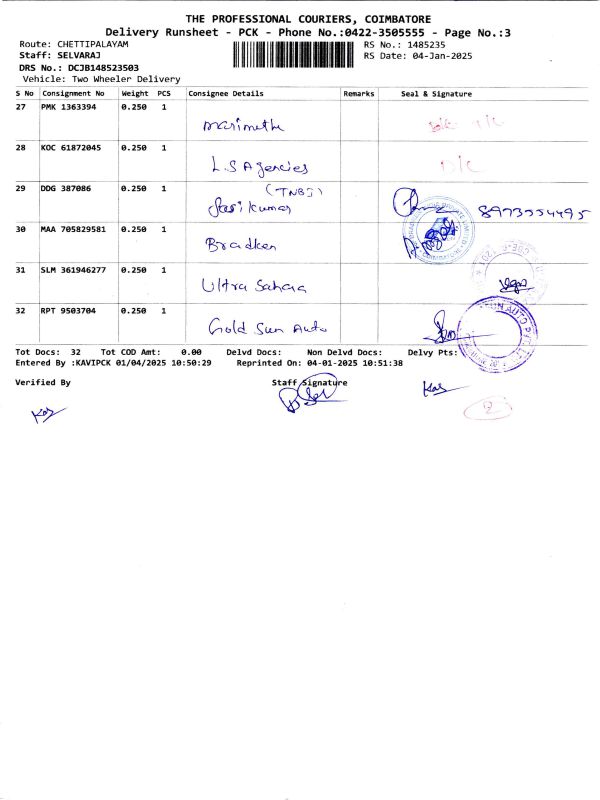 THE PROFESSIONAL COURIERS, COIMBATORE
Delivery Runsheet - PCK - Phone No.:0422-3505555 - Page No.:3
Route: CHETTIPALAYAM RS No.: 1485235
Staff: SELVARAJ RS Date: 04-Jan-2025
DRS No.: DCJB148523503
Vehicle: Two Wheeler Delivery
S No Consignment No Weight PCS Consignee Details Remarks Seal & Signature
27 PMK 1363394 0.250 1
Marimuthu
28 KOC 61872045 0.250 1
L.S Agencies D/C
29 DDG 387086 0.250 1 (TNBJ)
Sasikumar 8973554495
30 MAA 705829581 0.250 1
Bradken
31 SLM 361946277 0.250 1
Ultra Sahara
32 RPT 9503704 0.250 1
Gold Sun Auto
Tot Docs: 32 Tot COD Amt: 0.00 Delvd Docs: Non Delvd Docs: Delvy Pts:
Entered By :KAVIPCK 01/04/2025 10:50:29 Reprinted On: 04-01-2025 10:51:38
Verified By Staff Signature
2